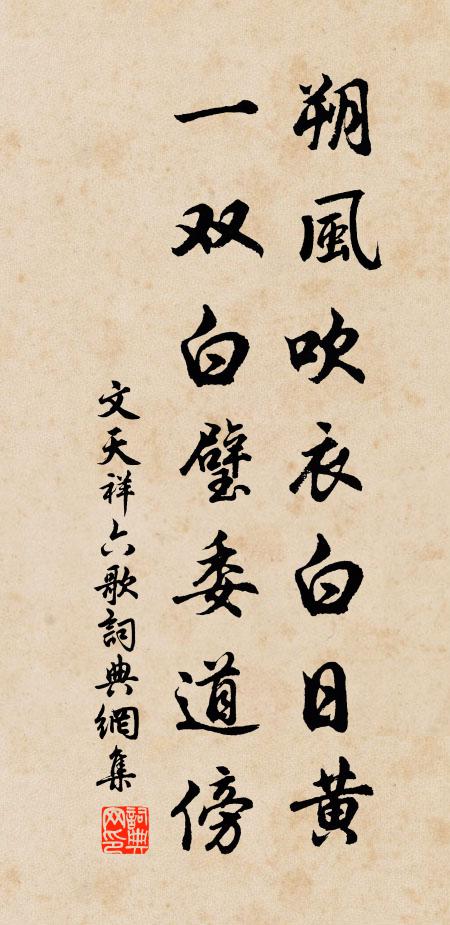 朔風吹衣白日黄
一双白璧委道傍
文天祥六歌詞典網集
詞典网印